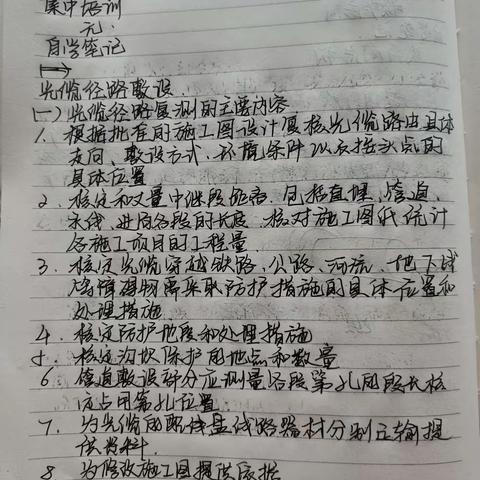 集中培训
元.
自学笔记
光缆径路敷设.
(一) 光缆径路复测的主要内容
1. 根据批准的施工图设计复核光缆路由具体
走向、敷设方式、环境条件以及接头点的
具体位置
2. 核定和丈量中继段距离, 包括直埋、管道、
水线、进局各段的长度, 核对施工图纸统计
各施工项目的工程量.
3. 核定光缆穿越铁路、公路、河流、地下
障碍物需采取防护措施的具体位置和
处理措施
4. 核定防护地段和处理措施
5. 核定沟坎保护的地点和数量
6. 管道敷设部分应测量各段管孔的段长核
定占用管孔位置.
7. 为光缆的配盘线路器材分别运输提
供资料.
8. 为修改施工图提供依据